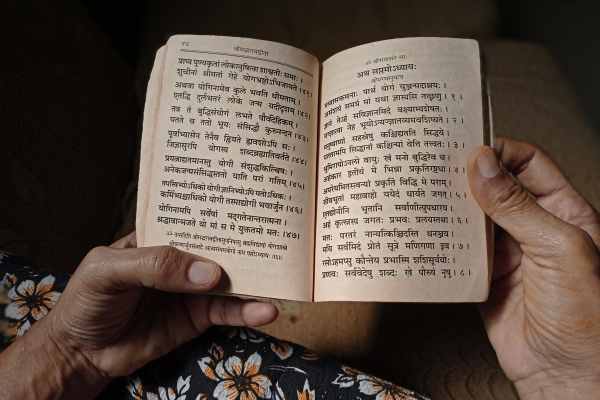 ४४ श्रीमद्भगवद्गीता
प्राप्य पुण्यकृतां लोकानुषित्वा शाश्वतीः समाः ।
शुचीनां श्रीमतां गेहे योगभ्रष्टोऽभिजायते ।४१।
अथवा योगिनामेव कुले भवति धीमताम् ।
एतद्धि दुर्लभतरं लोके जन्म यदीदृशम् ।४२।
तत्र तं बुद्धिसंयोगं लभते पौर्वदेहिकम् ।
यतते च ततो भूयः संसिद्धौ कुरुनन्दन ।४३।
पूर्वाभ्यासेन तेनैव ह्रियते ह्यवशोऽपि सः ।
जिज्ञासुरपि योगस्य शब्दब्रह्मातिवर्तते ।४४।
प्रयत्नाद्यतमानस्तु योगी संशुद्धकिल्बिषः ।
अनेकजन्मसंसिद्धस्ततो याति परां गतिम् ।४५।
तपस्विभ्योऽधिको योगी ज्ञानिभ्योऽपि मतोऽधिकः ।
कर्मिभ्यश्चाधिको योगी तस्माद्योगी भवार्जुन ।४६।
योगिनामपि सर्वेषां मद्गतेनान्तरात्मना ।
श्रद्धावान्भजते यो मां स मे युक्ततमो मतः ।४७।
ॐ तत्सदिति श्रीमद्भगवद्गीतासूपनिषत्सु ब्रह्मविद्यायां योगशास्त्रे
नाम षष्ठोऽध्यायः ।।६।।
ॐ श्रीपरमात्मने नमः
अथ सप्तमोऽध्यायः
श्रीभगवानुवाच
पार्थ योगं युञ्जन्मदाश्रयः ।
समग्रं मां यथा ज्ञास्यसि तच्छृणु । १ ।
तेऽहं सविज्ञानमिदं वक्ष्याम्यशेषतः ।
नेह भूयोऽन्यज्ज्ञातव्यमवशिष्यते । २ ।
सहस्रेषु कश्चिद्यतति सिद्धये ।
सिद्धानां कश्चिन्मां वेत्ति तत्त्वतः । ३ ।
वायुः खं मनो बुद्धिरेव च ।
अहंकार इतीयं मे भिन्ना प्रकृतिरष्टधा । ४ ।
प्रकृतिं विद्धि मे पराम् ।
जीवभूतां महाबाहो ययेदं धार्यते जगत् । ५ ।
भूतानि सर्वाणीत्युपधारय ।
अहं कृत्स्नस्य जगतः प्रभवः प्रलयस्तथा । ६ ।
मत्तः परतरं नान्यत्किञ्चिदस्ति धनञ्जय ।
मयि सर्वमिदं प्रोतं सूत्रे मणिगणा इव । ७ ।
रसोऽहमप्सु कौन्तेय प्रभास्मि शशिसूर्ययोः ।
प्रणवः सर्ववेदेषु शब्दः खे पौरुषं नृषु । ८ ।